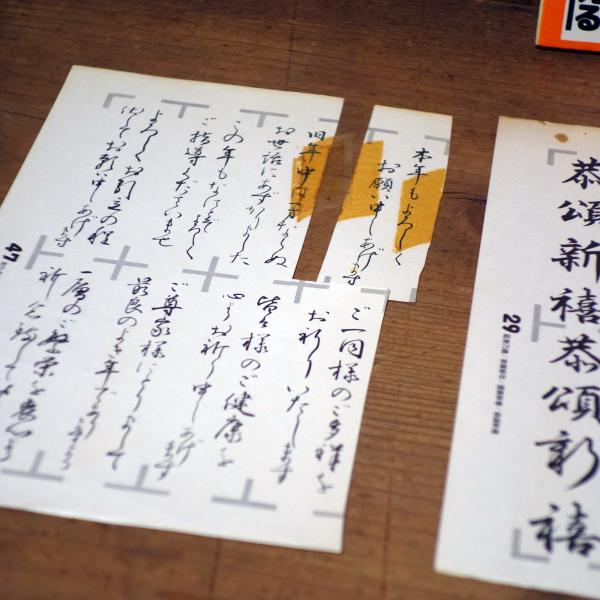 恭頌新禧恭頌新禧
29
本年もよろしく
お願い申しあげます
旧年中は一方ならぬ
お世話にあずかりました
この年もなにとぞよろしく
ご指導くださいませ
よろしくお引立の程
伏してお願い申しあげます
47
ご一同様のご多祥を
お祈りいたします
皆々様のご健康を
心よりお祈り申しあげます
ご尊家様にとりまして
最良のよき年でありますよう
一層のご繁栄を衷心より
る